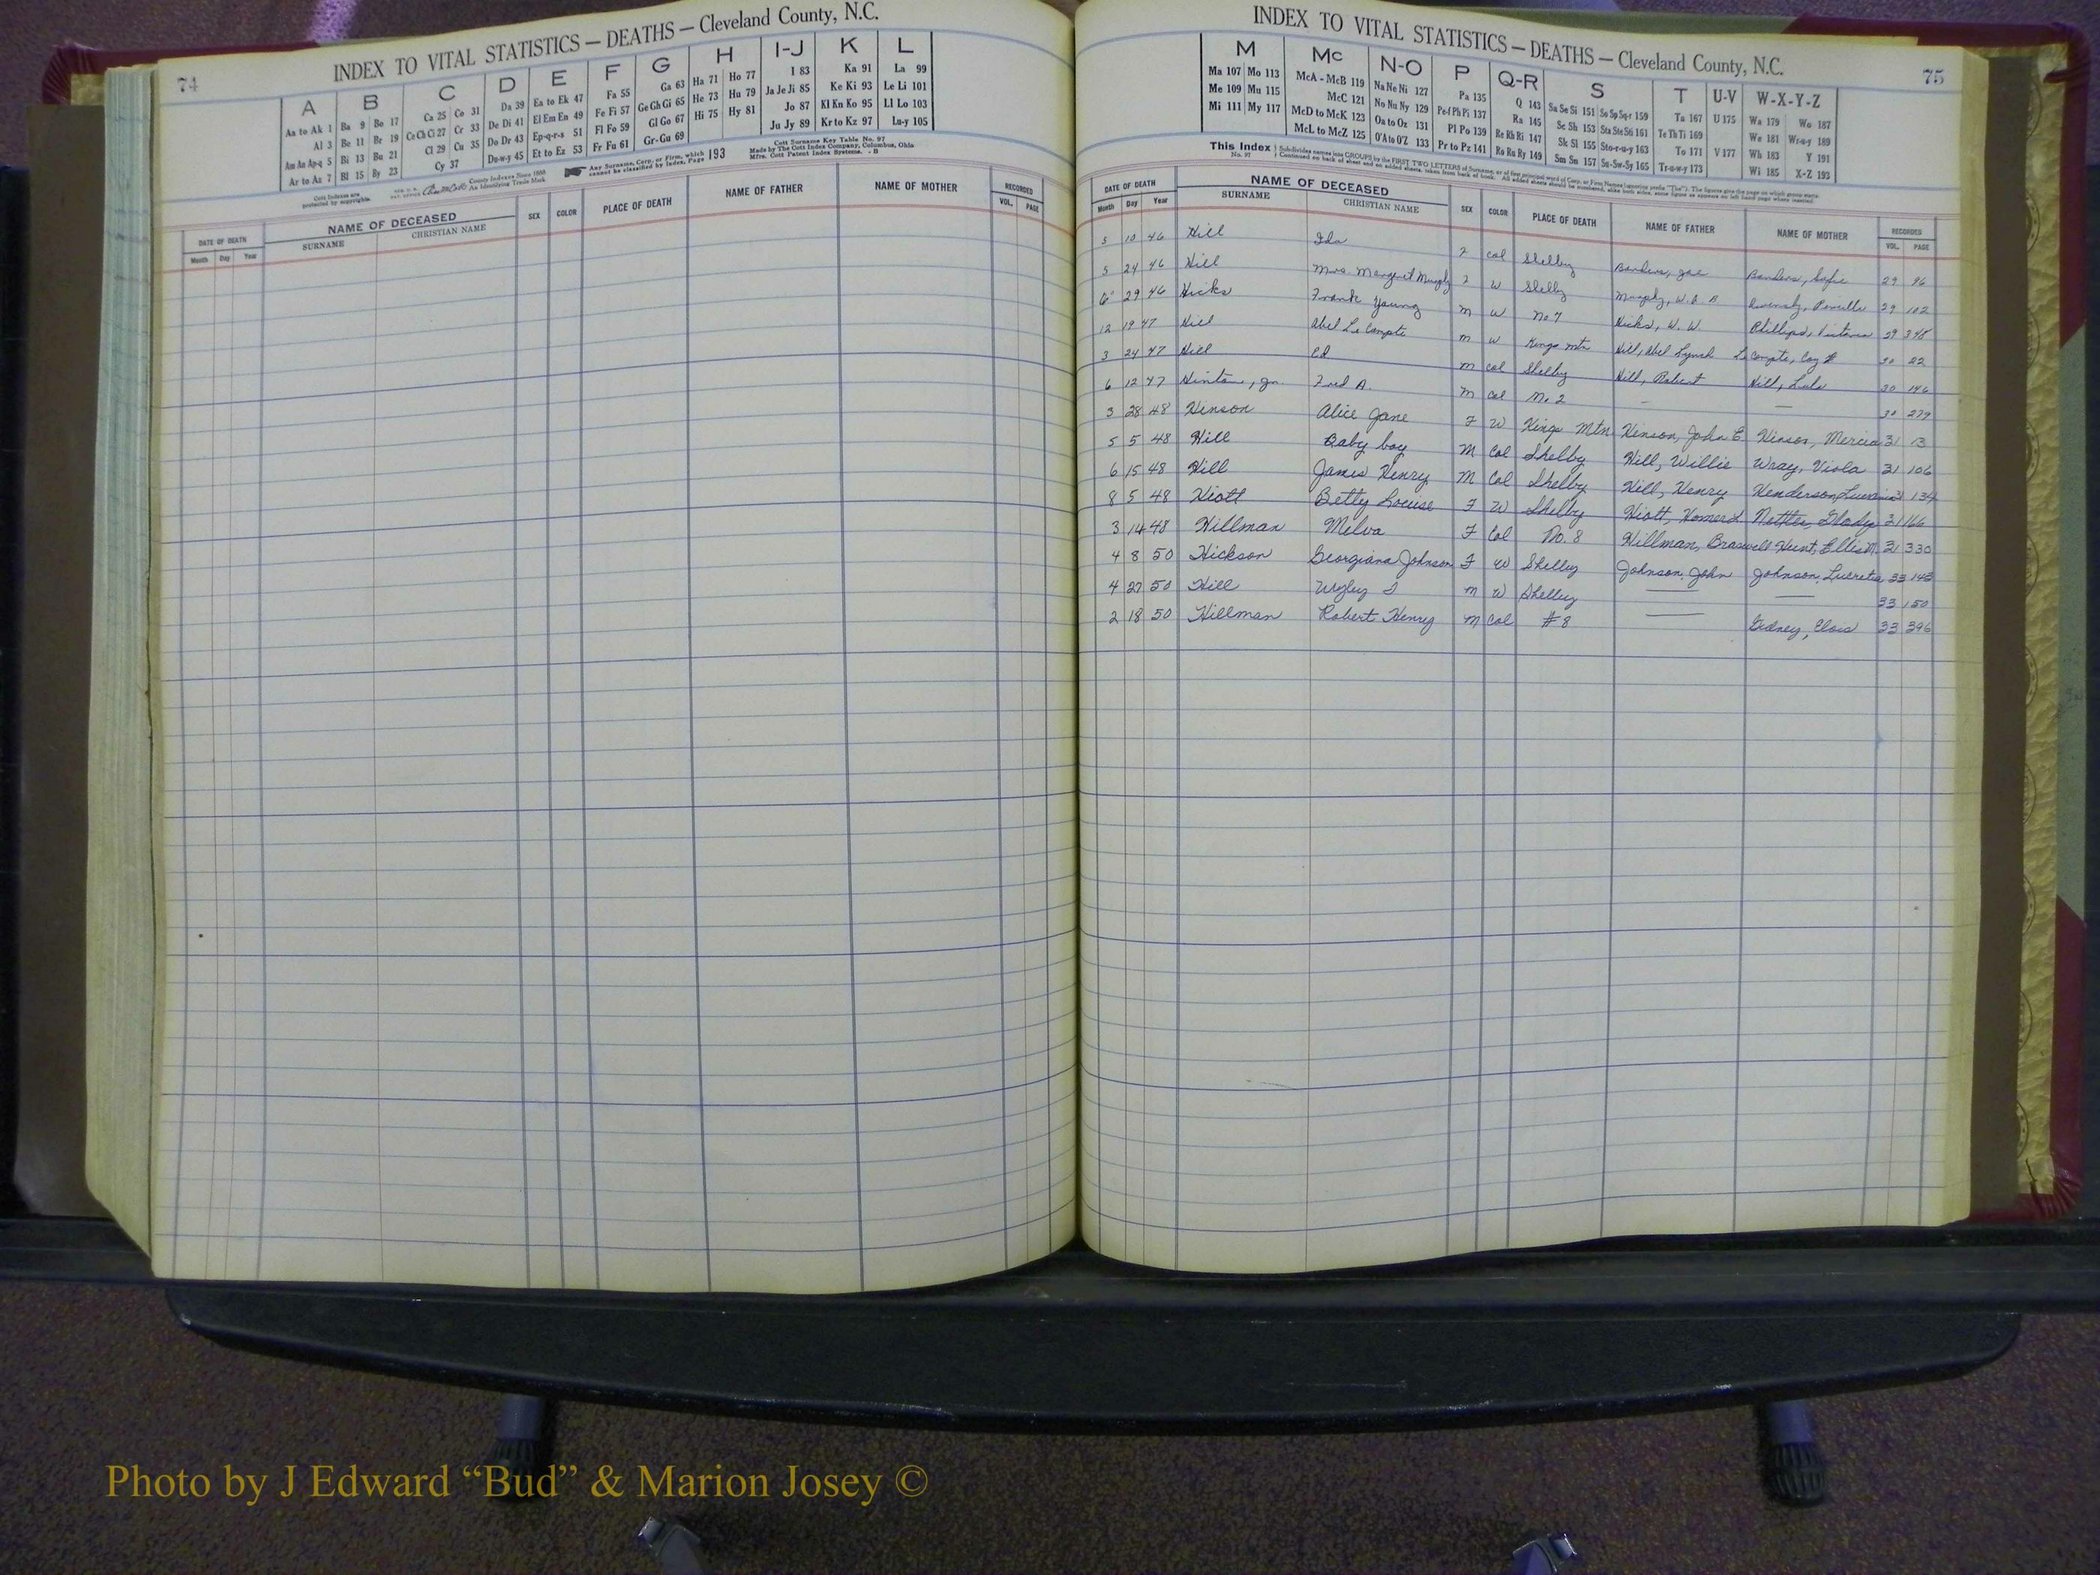 74
INDEX TO VITAL STATISTICS — DEATHS — Cleveland County, N.C.
A B C D E F G H I-J K L
Aa to Ak 1 Ba 9 Bo 17 Ca 25 Co 31 Da 39 Ea to Ek 47 Fa 55 Ga 63 Ha 71 Ho 77 I 83 Ka 91 La 99
Al 3 Be 11 Br 19 Ce Ch Ci 27 Cr 33 De Di 41 El Em En 49 Fe Fi 57 Ge Gh Gi 65 He 73 Hu 79 Ja Je Ji 85 Ke Ki 93 Le Li 101
Am An Ap-q 5 Bi 13 Bu 21 Cl 29 Cu 35 Do Dr 43 Ep-q-r-s 51 Fl Fo 59 Gl Go 67 Hi 75 Hy 81 Jo 87 Kl Kn Ko 95 Ll Lo 103
Ar to Az 7 Bl 15 By 23 Cy 37 Du-w-y 45 Et to Ez 53 Fr Fu 61 Gr-Gu 69 Ju Jy 89 Kr to Kz 97 Lu-y 105
Cott Indexes are protected by copyrights.
County Indexes Since 1888 An Identifying Trade Mark
Any Surname, Corp. or Firm, which cannot be classified by Index, Page 193
Cott Surname Key Table No. 97
Made by The Cott Index Company, Columbus, Ohio
Mfrs. Cott Patent Index Systems. - B
DATE OF DEATH NAME OF DECEASED SEX COLOR PLACE OF DEATH NAME OF FATHER NAME OF MOTHER RECORDED
Month Day Year SURNAME CHRISTIAN NAME VOL. PAGE
INDEX TO VITAL STATISTICS — DEATHS — Cleveland County, N.C.
75
M Mc N-O P Q-R S T U-V W-X-Y-Z
Ma 107 Mo 113 McA - McB 119 Na Ne Ni 127 Pa 135 Q 143 Sa Se Si 151 So Sp Sq-r 159 Ta 167 U 175 Wa 179 Wo 187
Me 109 Mu 115 McC 121 No Nu Ny 129 Pe-f Ph Pi 137 Ra 145 Sc Sh 153 Sta Ste Sti 161 Te Th Ti 169 We 181 Wr-u-y 189
Mi 111 My 117 McD to McK 123 Oa to Oz 131 Pl Po 139 Re Rh Ri 147 Sk Sl 155 Sto-r-u-y 163 To 171 V 177 Wh 183 Y 191
McL to McZ 125 O'A to O'Z 133 Pr to Pz 141 Ro Ru Ry 149 Sm Sn 157 Su-Sw-Sy 165 Tr-u-w-y 173 Wi 185 X-Z 193
This Index No. 97 Subdivides names into GROUPS by the FIRST TWO LETTERS of Surname, or of first principal word of Corp. or Firm Names (ignoring prefix "The"). The figures give the page on which group starts.
DATE OF DEATH NAME OF DECEASED SEX COLOR PLACE OF DEATH NAME OF FATHER NAME OF MOTHER RECORDED
Month Day Year SURNAME CHRISTIAN NAME VOL. PAGE
5 10 46 Hill Ida F Col Shelby 29 96
5 24 46 Hill Mrs Margaret Murphy F W Shelby Murphy, W. 29 102
6 29 46 Hicks Frank Young M W No 7 Hicks, W. W. Phillips, 29 348
12 19 47 Hill Abel Le Compte M W Kings Mtn Hill, Abel Lynch Le Compte, Coy 30 22
3 24 47 Hill Ed M Col Shelby Hill, Robert Hill, Lula 30 146
6 12 47 Hinton, Jr. Fred A. M Col No. 2 — — 30 279
3 28 48 Hinson Alice Jane F W Kings Mtn Hinson, John E Hinson, Mercia 31 13
5 5 48 Hill Baby boy M Col Shelby Hill, Willie Wray, Viola 31 106
6 15 48 Hill James Henry M Col Shelby Hill, Henry Henderson, 31 134
8 5 48 Hiott Betty Louise F W Shelby Hiott, Homer L Nettles, Gladys 31 166
3 14 48 Hillman Melva F Col No. 8 Hillman, Braswell Hunt, Ellis M. 31 330
4 8 50 Hickson Georgiana Johnson F W Shelby Johnson, John Johnson, Lucretia 33 143
4 27 50 Hill M W Shelby — — 33 150
2 18 50 Hillman Robert Henry M Col #8 — Gidney, Elois 33 396
Photo by J Edward “Bud” & Marion Josey ©